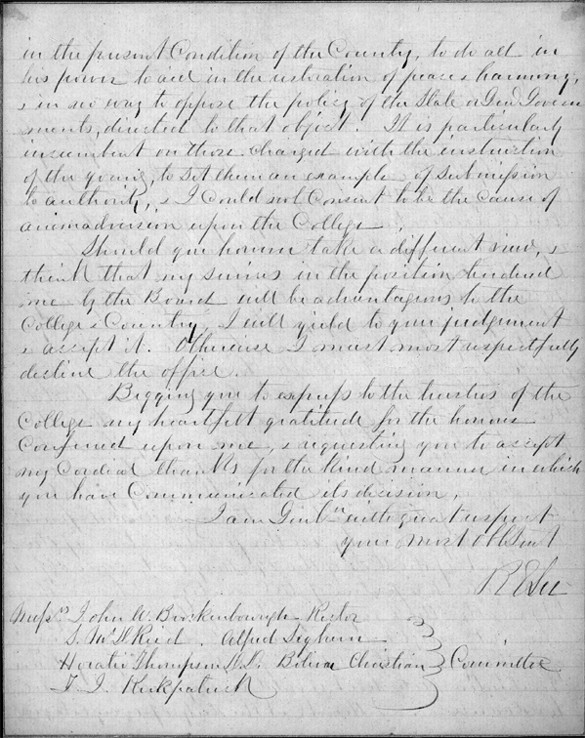 in the present Condition of the County, to do all in
his power to aid in the restoration of peace & harmony,
& in no way to oppose the policy of the State or Genl Govern
ments, directed to that object. It is particularly
incumbent on those charged with the instruction
of the young, to set them an example of submission
to authority, & I could not Consent to be the cause of
animadversion upon the College.
Should you however take a different view, &
think that my services in the position tendered
me by the Board will be advantageous to the
College & Country, I will yield to your judgement
& accept it. Otherwise I must most respectfully
decline the office.
Begging you to express to the trustees of the
College my heartfelt gratitude for the honour
Conferred upon me, & requesting you to accept
my Cordial thanks for the kind manner in which
you have Communicated its decision,
I am Gentn with great respect
your most obt Servt
R E Lee
Messrs John W. Brockenbrough Rector
S. McD. Reid. Alfred Leyburn
Horatio Thompson D.D. Bolivar Christian Committee
T. J. Kirkpatrick